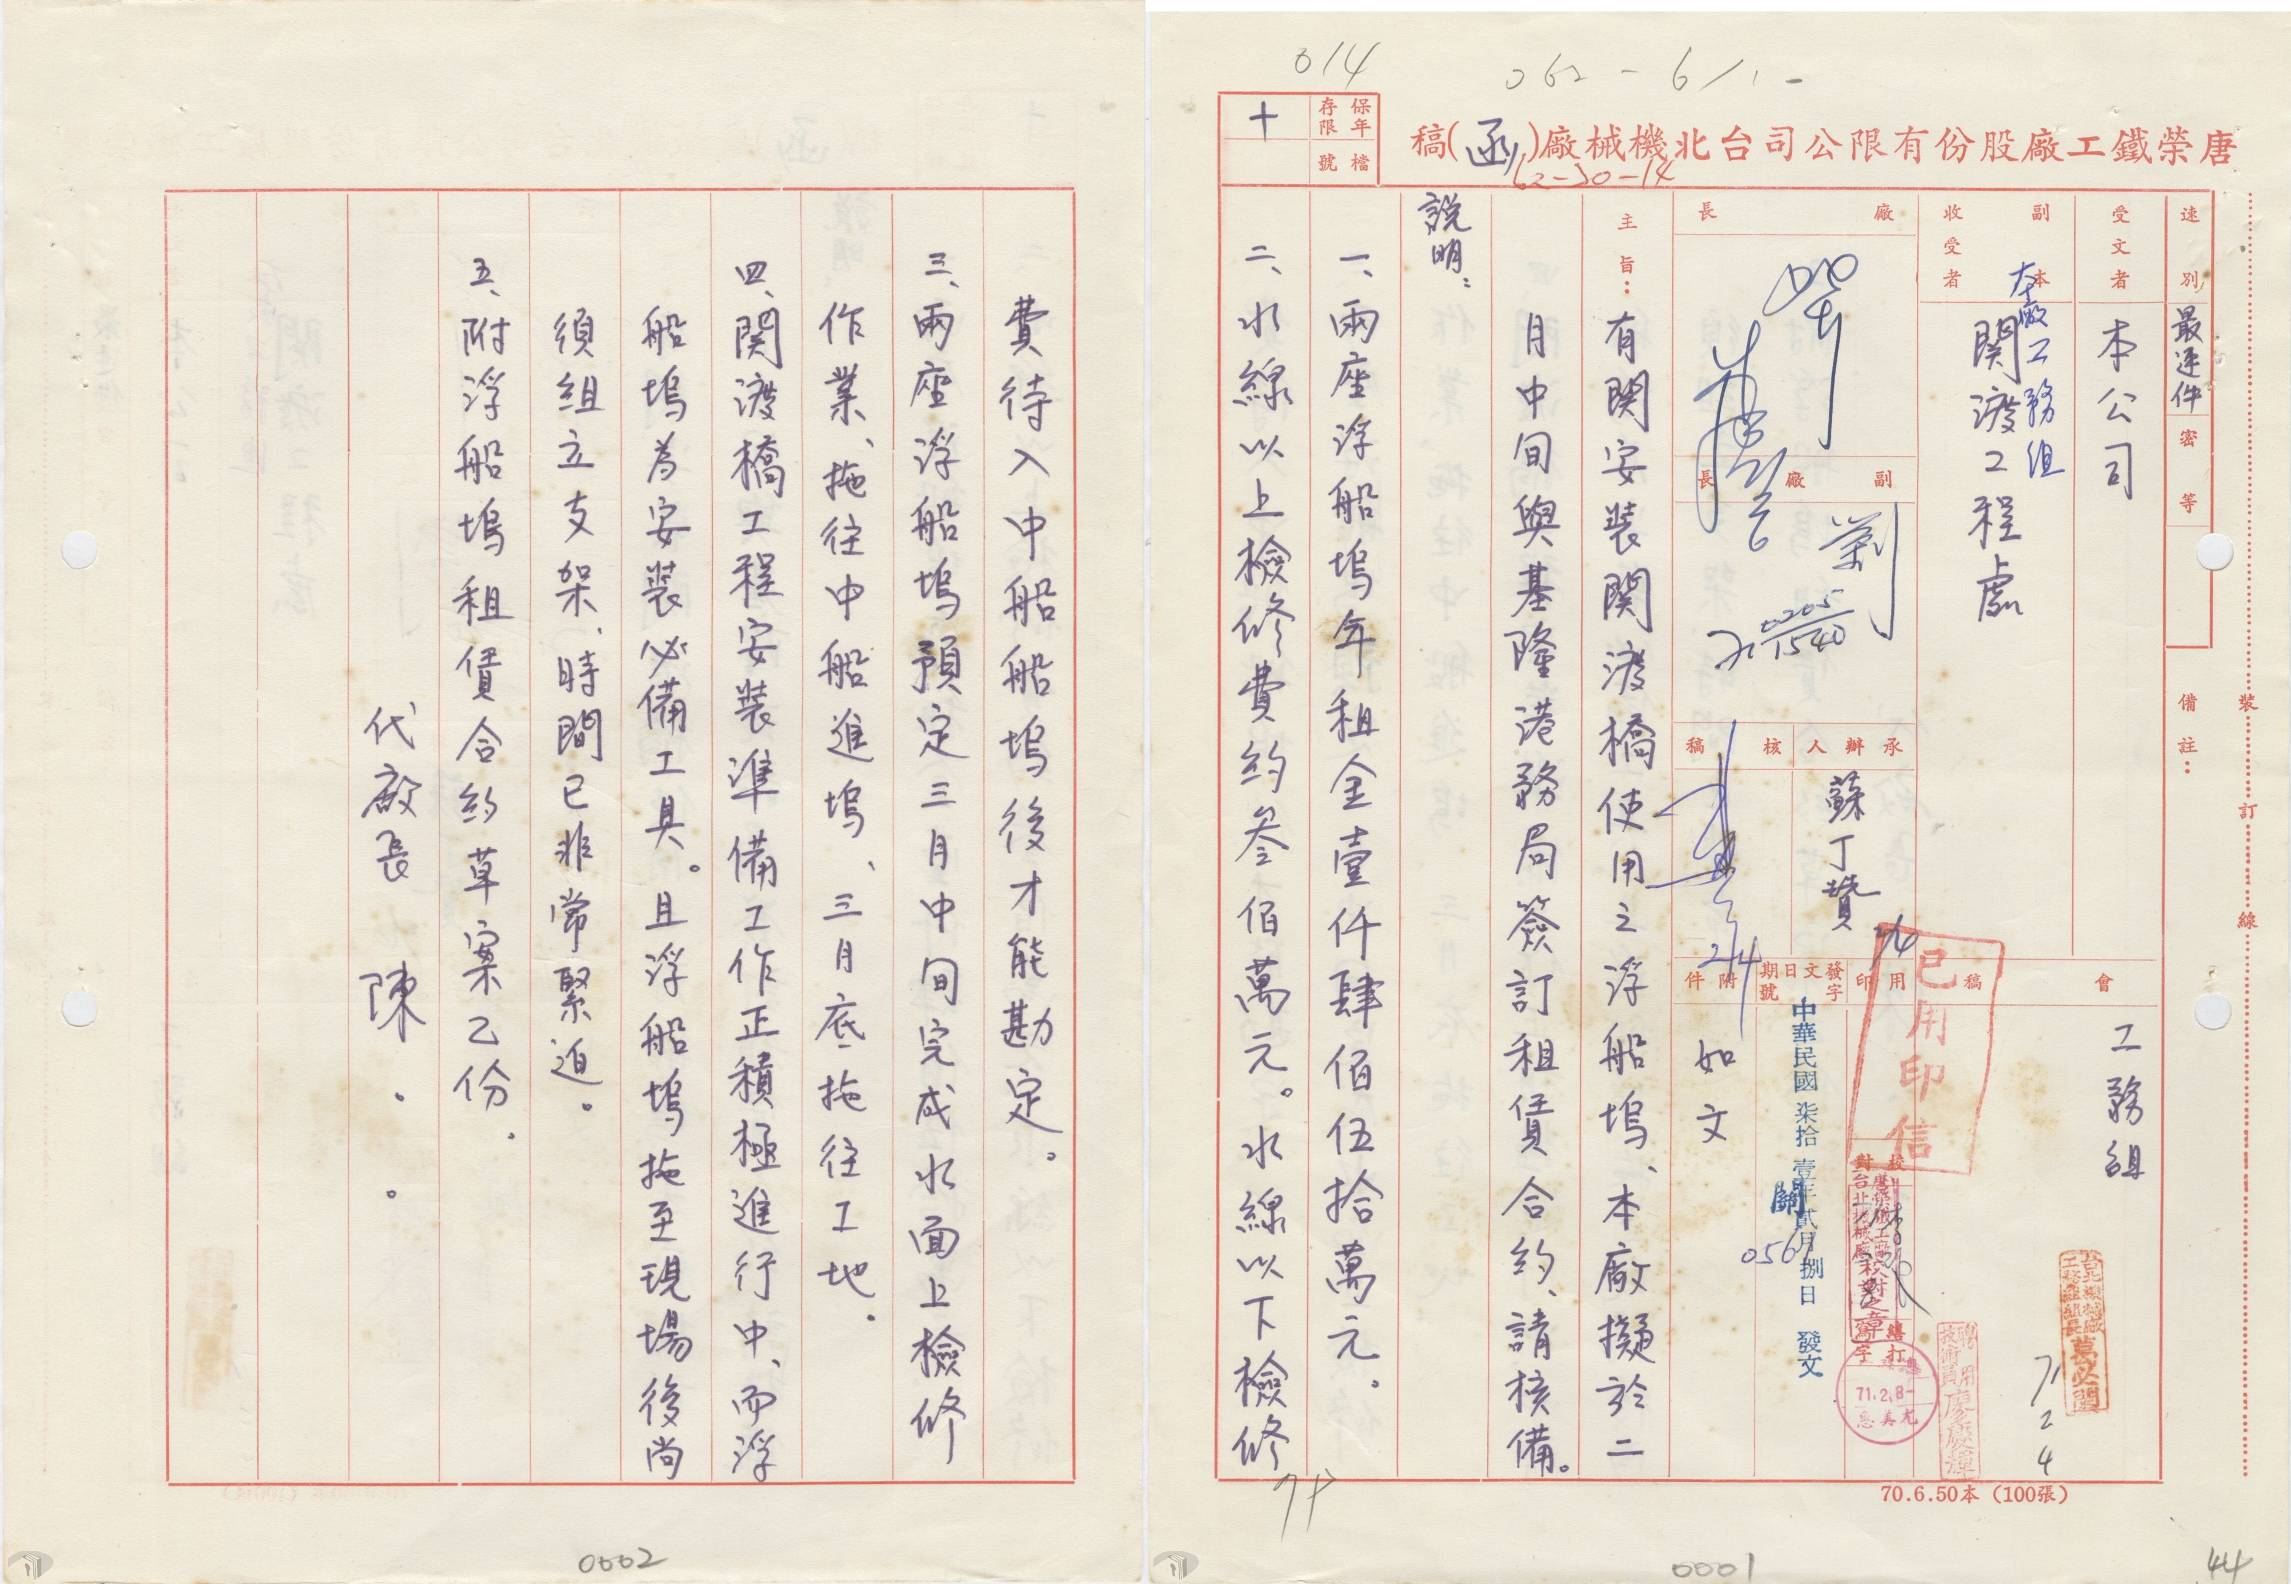 014
062-6/1-
唐榮鐵工廠股份有限公司台北機械廠(函)稿
62-50-14
保存年限
十
檔號
速別
最速件
密等
備註：
裝訂線
受文者
本公司
副本收受者
本廠工務組
関渡工程處
會稿
工務組
台北機械廠
工務組組長
萬必聞
71
2
4
聘用
技術員
廖慶輝
廠長
副廠長
劉
0205
1540
承辦人
蘇丁贊
2/4
核稿
2/4
用印
已用印信
發文日期字號
中華民國柒拾壹年貳月捌日發文
附件
如文
校對
唐榮鐵工廠
台北機械廠校對之章
繕打
71.2.8-
尤美惠
主旨：有関安裝関渡橋使用之浮船塢、本廠擬於二
月中旬與基隆港務局簽訂租賃合約、請核備。
説明：
一、兩座浮船塢年租金壹仟肆佰伍拾萬元。
二、水線以上檢修費約叁佰萬元。水線以下檢修
70.6.50本（100張）
0001
44
費待入中船船塢後才能勘定。
三、兩座浮船塢預定三月中旬完成水面上檢修
作業、拖往中船進塢、三月底拖往工地。
四、関渡橋工程安裝準備工作正積極進行中、而浮
船塢為安裝必備工具。且浮船塢拖至現場後尚
須組立支架、時間已非常緊迫。
五、附浮船塢租賃合約草案乙份。
代廠長 陳．．
0002